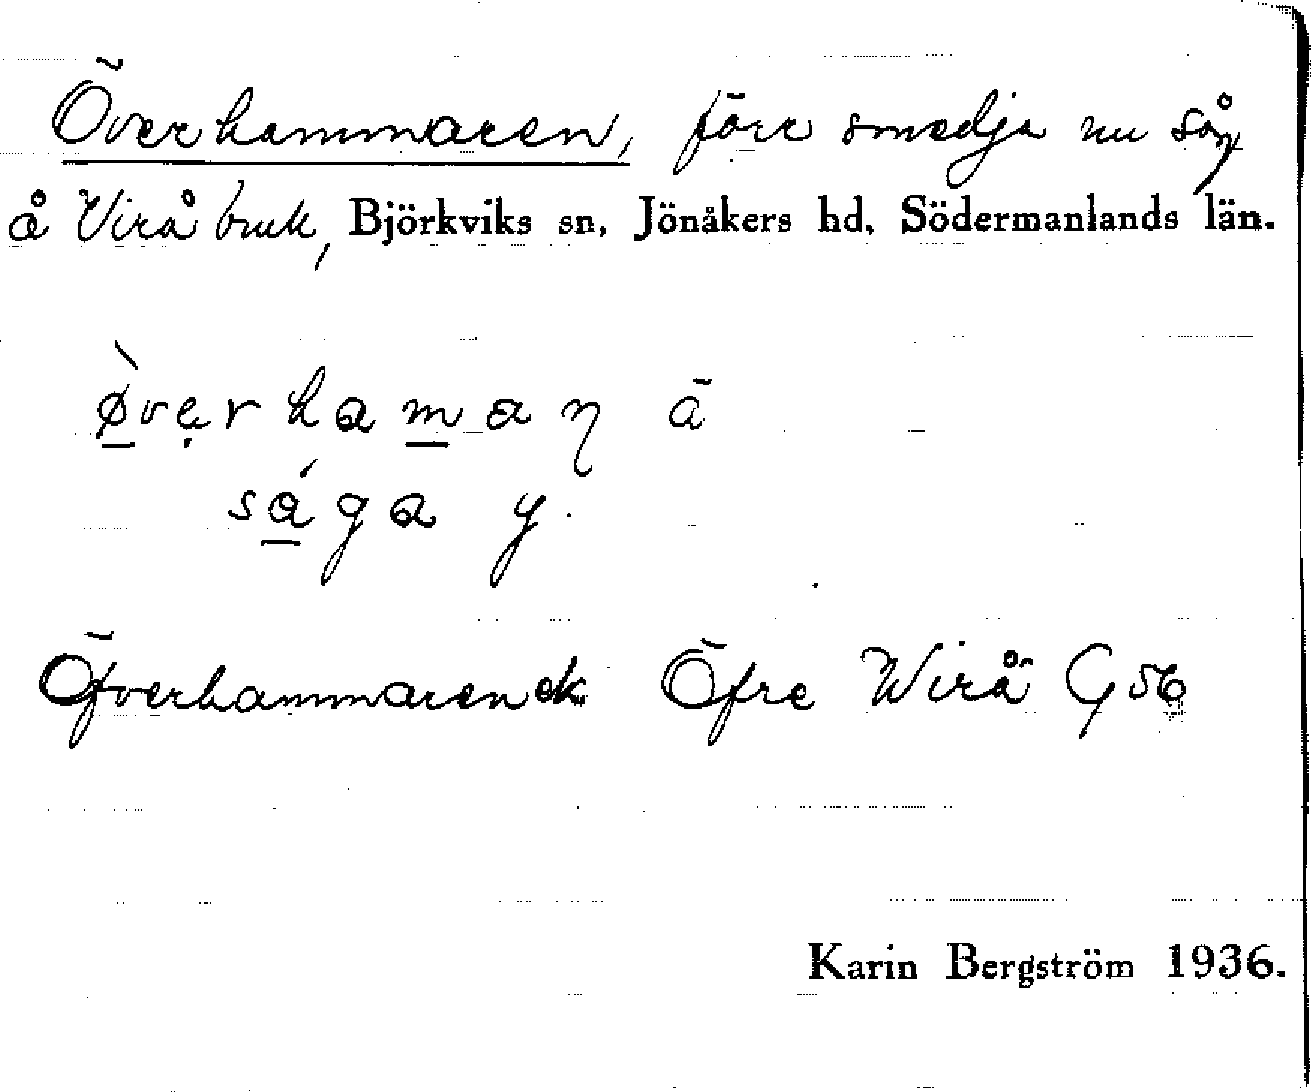 Överhammaren, förr smedja nu såg
å Virå bruk, Björkviks sn, Jönåkers hd, Södermanlands län.
sága
Öfverhammaren ek Öfre Wirå G 56
Karin Bergström 1936.